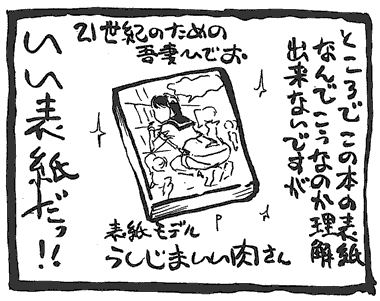 ところでこの本の表紙
なんでこうなのか理解
出来ないですが
21世紀のための
吾妻ひでお
表紙モデル
うしじまいい肉さん
いい表紙だッ!!